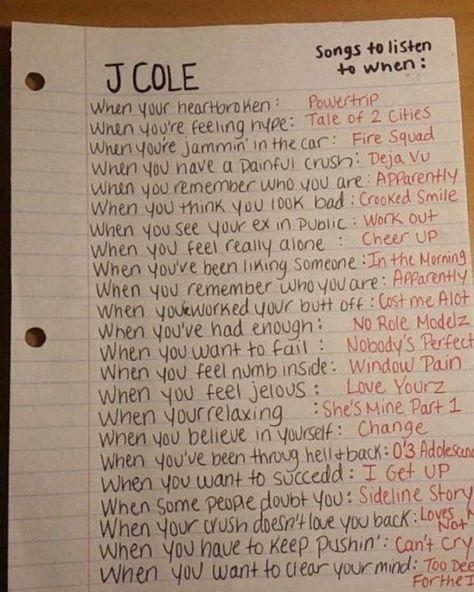 J COLE
Songs to listen
to when:
When your heartbroken: Powertrip
When you're feeling hype: Tale of 2 Cities
When you're jammin' in the car: Fire Squad
When you have a painful crush: Deja Vu
When you remember who you are: Apparently
When you think you look bad: Crooked Smile
When you see your ex in public: Work out
When you feel really alone: Cheer UP
When you've been liking someone: In the Morning
When you remember who you are: Apparently
When you've worked your butt off: Cost me Alot
When you've had enough: No Role Modelz
When you want to fail: Nobody's Perfect
When you feel numb inside: Window Pain
When you feel jelous: Love Yourz
When your relaxing: She's Mine Part 1
When you believe in yourself: Change
When you've been throug hell + back: 0'3 Adolescen
When you want to succedd: I Get UP
When some people doubt you: Sideline Story
When your crush doesn't love you back: Loves
Not
When you have to keep pushin': Can't Cry
When you want to clear your mind: Too Dee
For the I